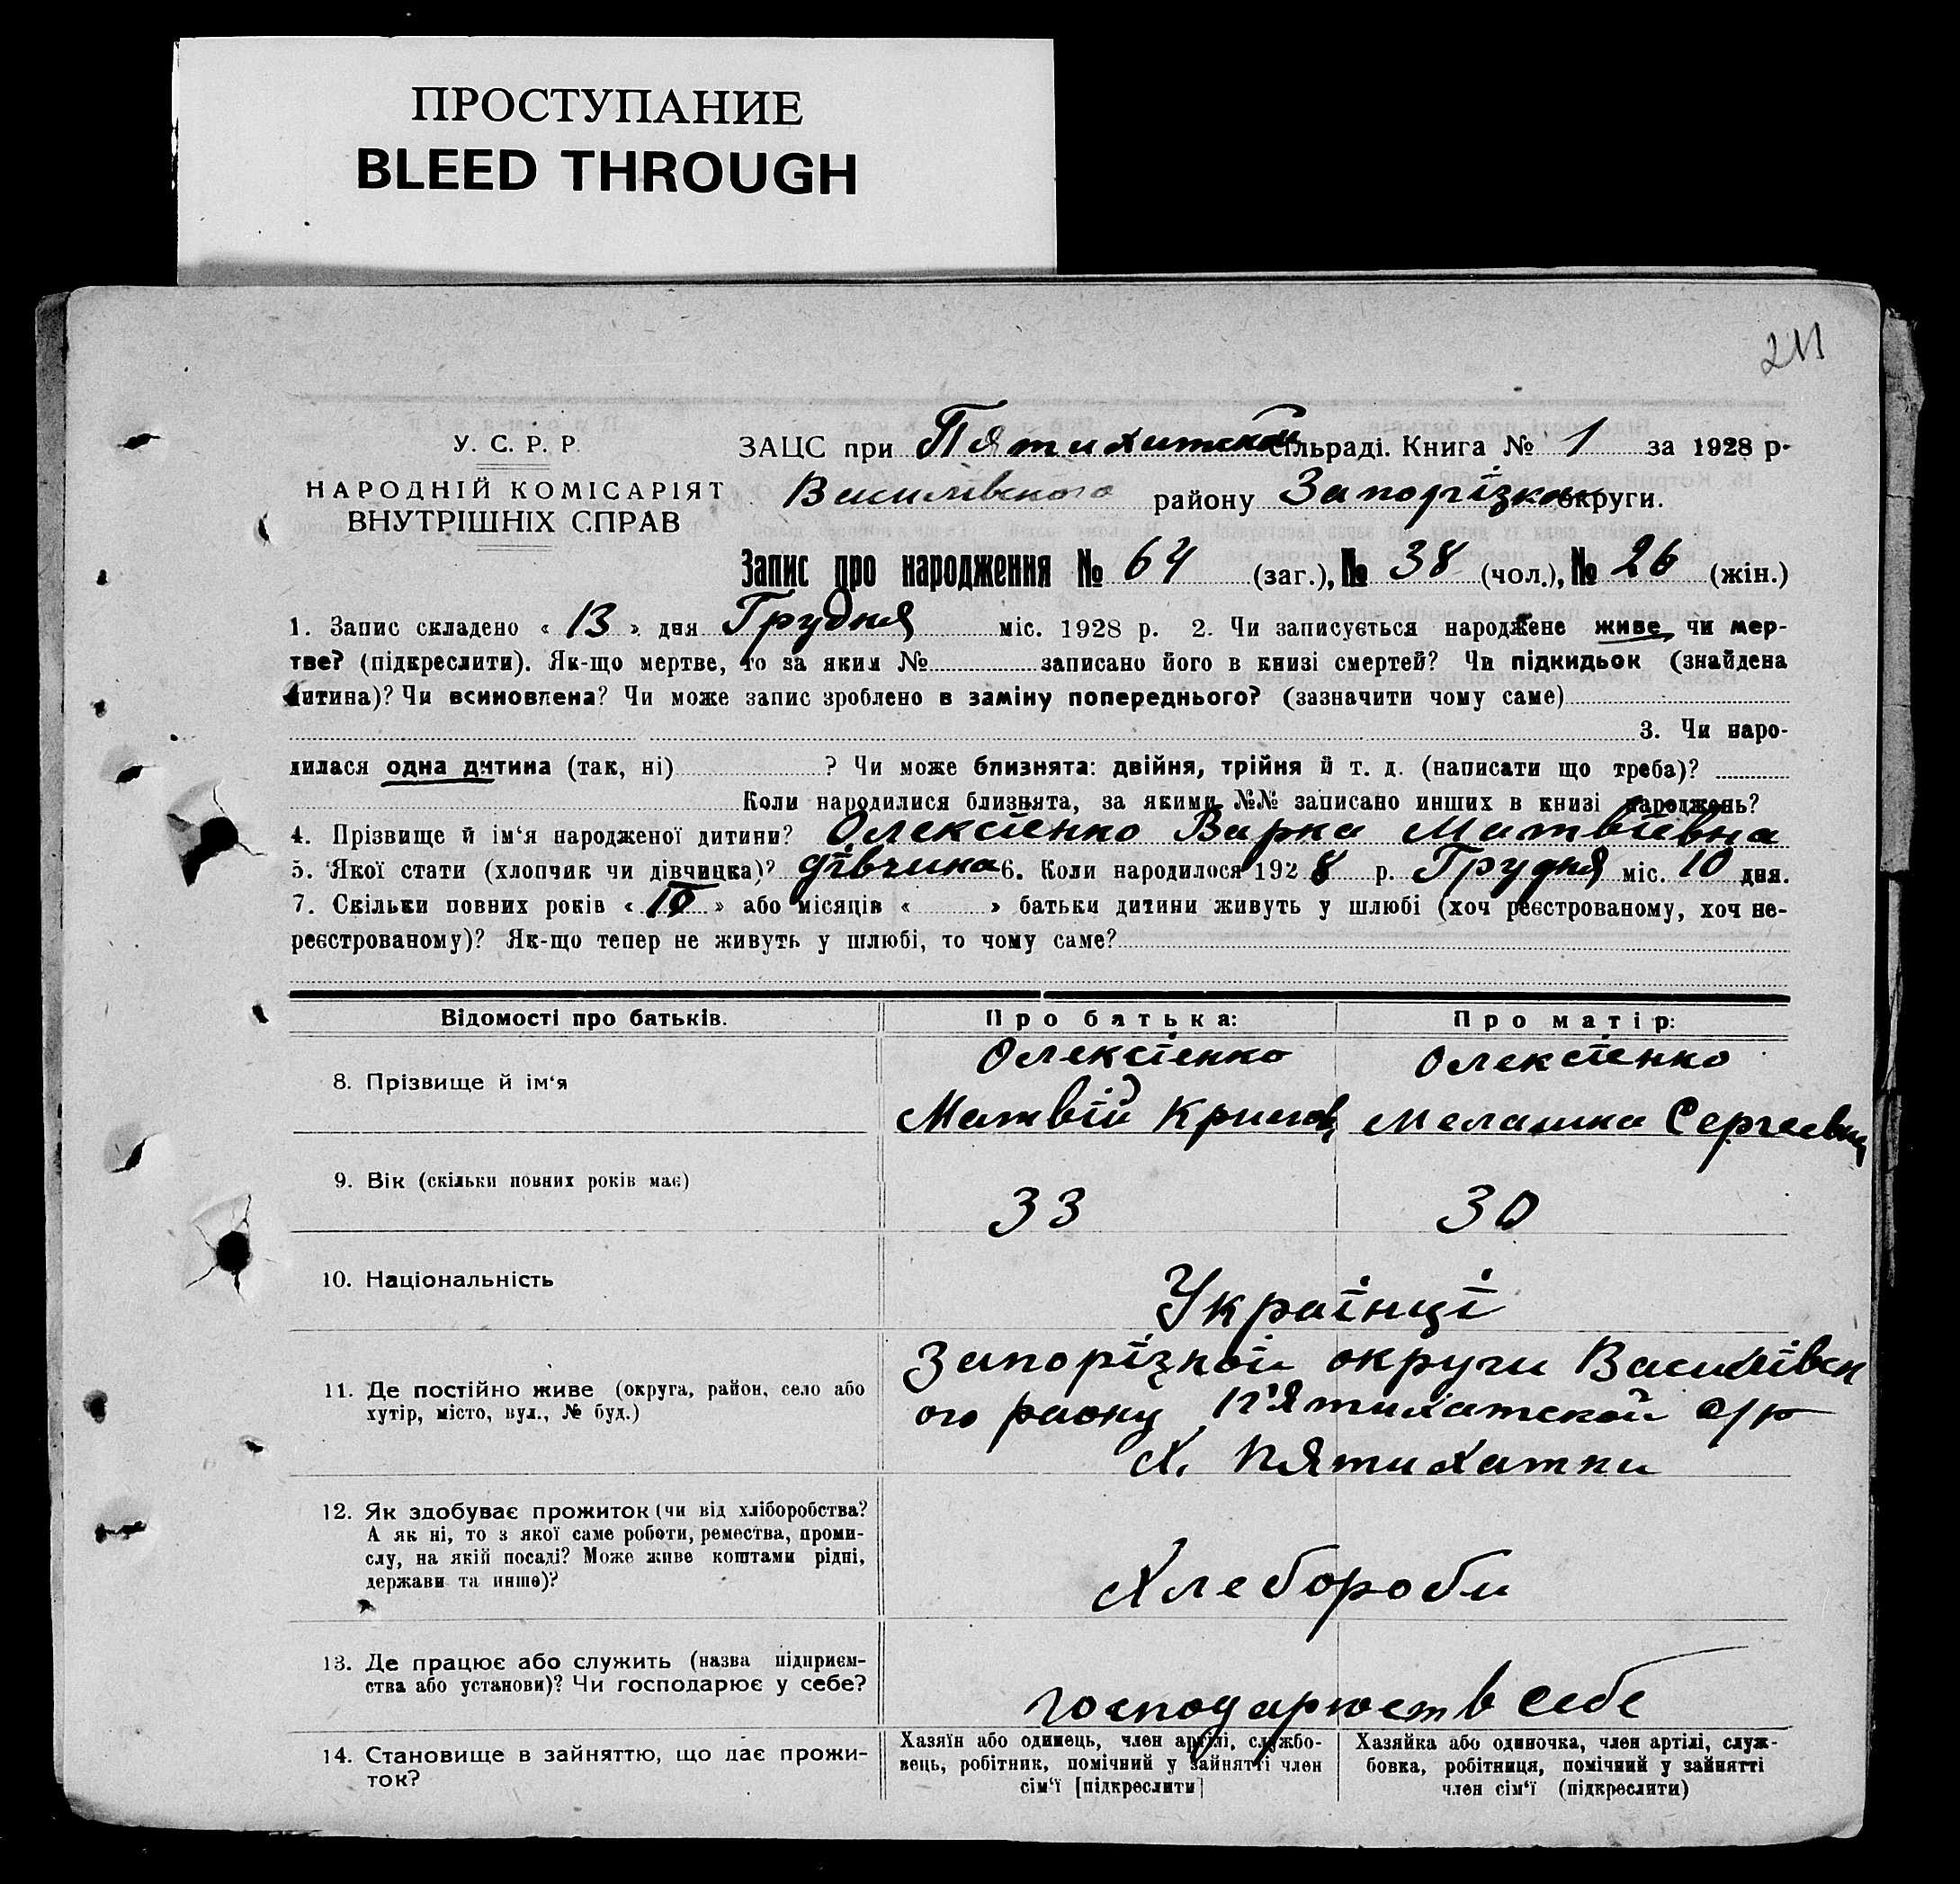 ПРОСТУПАНИЕ
BLEED THROUGH
211
У. С. Р. Р.
НАРОДНІЙ КОМІСАРІЯТ
ВНУТРІШНІХ СПРАВ
ЗАЦС при Пятихатской сільраді. Книга № 1 за 1928 р.
Василівского району Запорізкои округи.
Запис про народження № 64 (заг.), № 38 (чол.), № 26 (жін.)
1. Запис складено « 13 » дня Грудня міс. 1928 р. 2. Чи записується народжене живе, чи мер-
тве? (підкреслити). Як-що мертве, то за яким № записано його в книзі смертей? Чи підкидьок (знайдена
дитина)? Чи всиновлена? Чи може запис зроблено в заміну попереднього? (зазначити чому саме)
3. Чи наро-
дилася одна дитина (так, ні) ? Чи може близнята: двійня, трійня й т. д. (написати що треба)?
Коли народилися близнята, за якими №№ записано инших в книзі народжень?
4. Прізвище й ім‘я народженої дитини? Олексієнко Варка Матвіївна
5. Якої стати (хлопчик чи дівчицка)? дівчика 6. Коли народилося 1928 р. Грудня міс. 10 дня.
7. Скільки повних років « 10 » або місяців « » батьки дитини живуть у шлюбі (хоч реєстрованому, хоч не-
реєстрованому)? Як-що тепер не живуть у шлюбі, то чому саме?
Відомості про батьків. Про батька: Про матір:
8. Прізвище й ім‘я Олексієнко Олексієнко
Матвій Мелашка Сергеевна
9. Вік (скільки повних років має) 33 30
10. Національність Українці
11. Де постійно живе (округа, район, село або
хутір, місто, вул., № буд.)
Запорізкой округи Василівск
ого раону П'ятихатской с/р
х. Пятихатки
12. Як здобуває прожиток (чи від хліборобства?
А як ні, то з якої саме роботи, ремества, проми-
слу, на якій посаді? Може живе коштами рідні,
держави та инше)?
Хлебороби
13. Де працює або служить (назва підприєм-
ства або установи)? Чи господарює у себе?
господарюєт в себе
14. Становище в зайняттю, що дає прожи-
ток?
Хазяїн або одинець, член артілі, службо-
вець, робітник, помічний у зайнятті член
сім‘ї [підкреслити]
Хазяйка або одиночка, член артілі, служ-
бовка, робітниця, помічний у зайнятті
член сім‘ї (підкреслити)